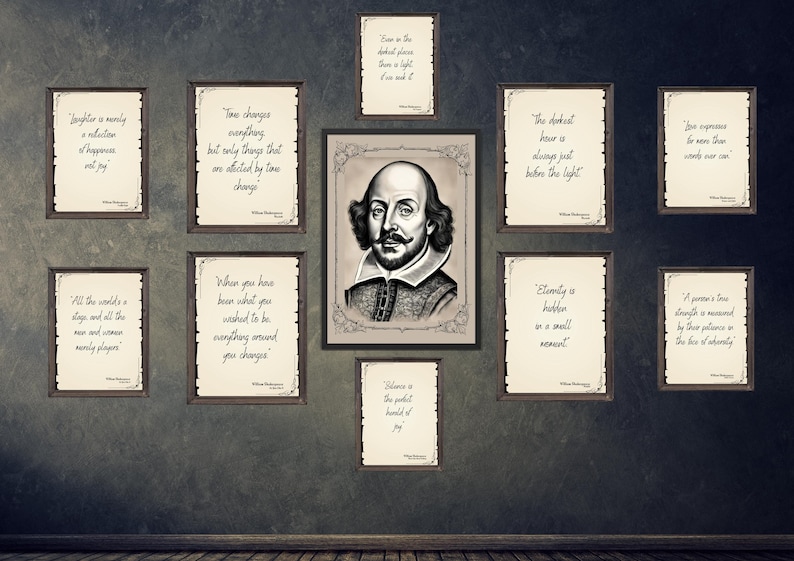 "Even in the
darkest places,
there is light,
if we seek it"
William Shakespeare
"Laughter is merely
a reflection
of happiness,
not joy"
William Shakespeare
"Time changes
everything,
but only things that
are affected by time
change"
William Shakespeare
"The darkest
hour is
always just
before the light."
William Shakespeare
"Love expresses
far more than
words ever can."
William Shakespeare
"All the world's a
stage, and all the
men and women
merely players"
William Shakespeare
"When you have
been what you
wished to be,
everything around
you changes."
William Shakespeare
"Eternity is
hidden
in a small
moment."
William Shakespeare
"A person's true
strength is measured
by their patience in
the face of adversity"
William Shakespeare
"Silence is
the perfect
herald of
joy"
William Shakespeare